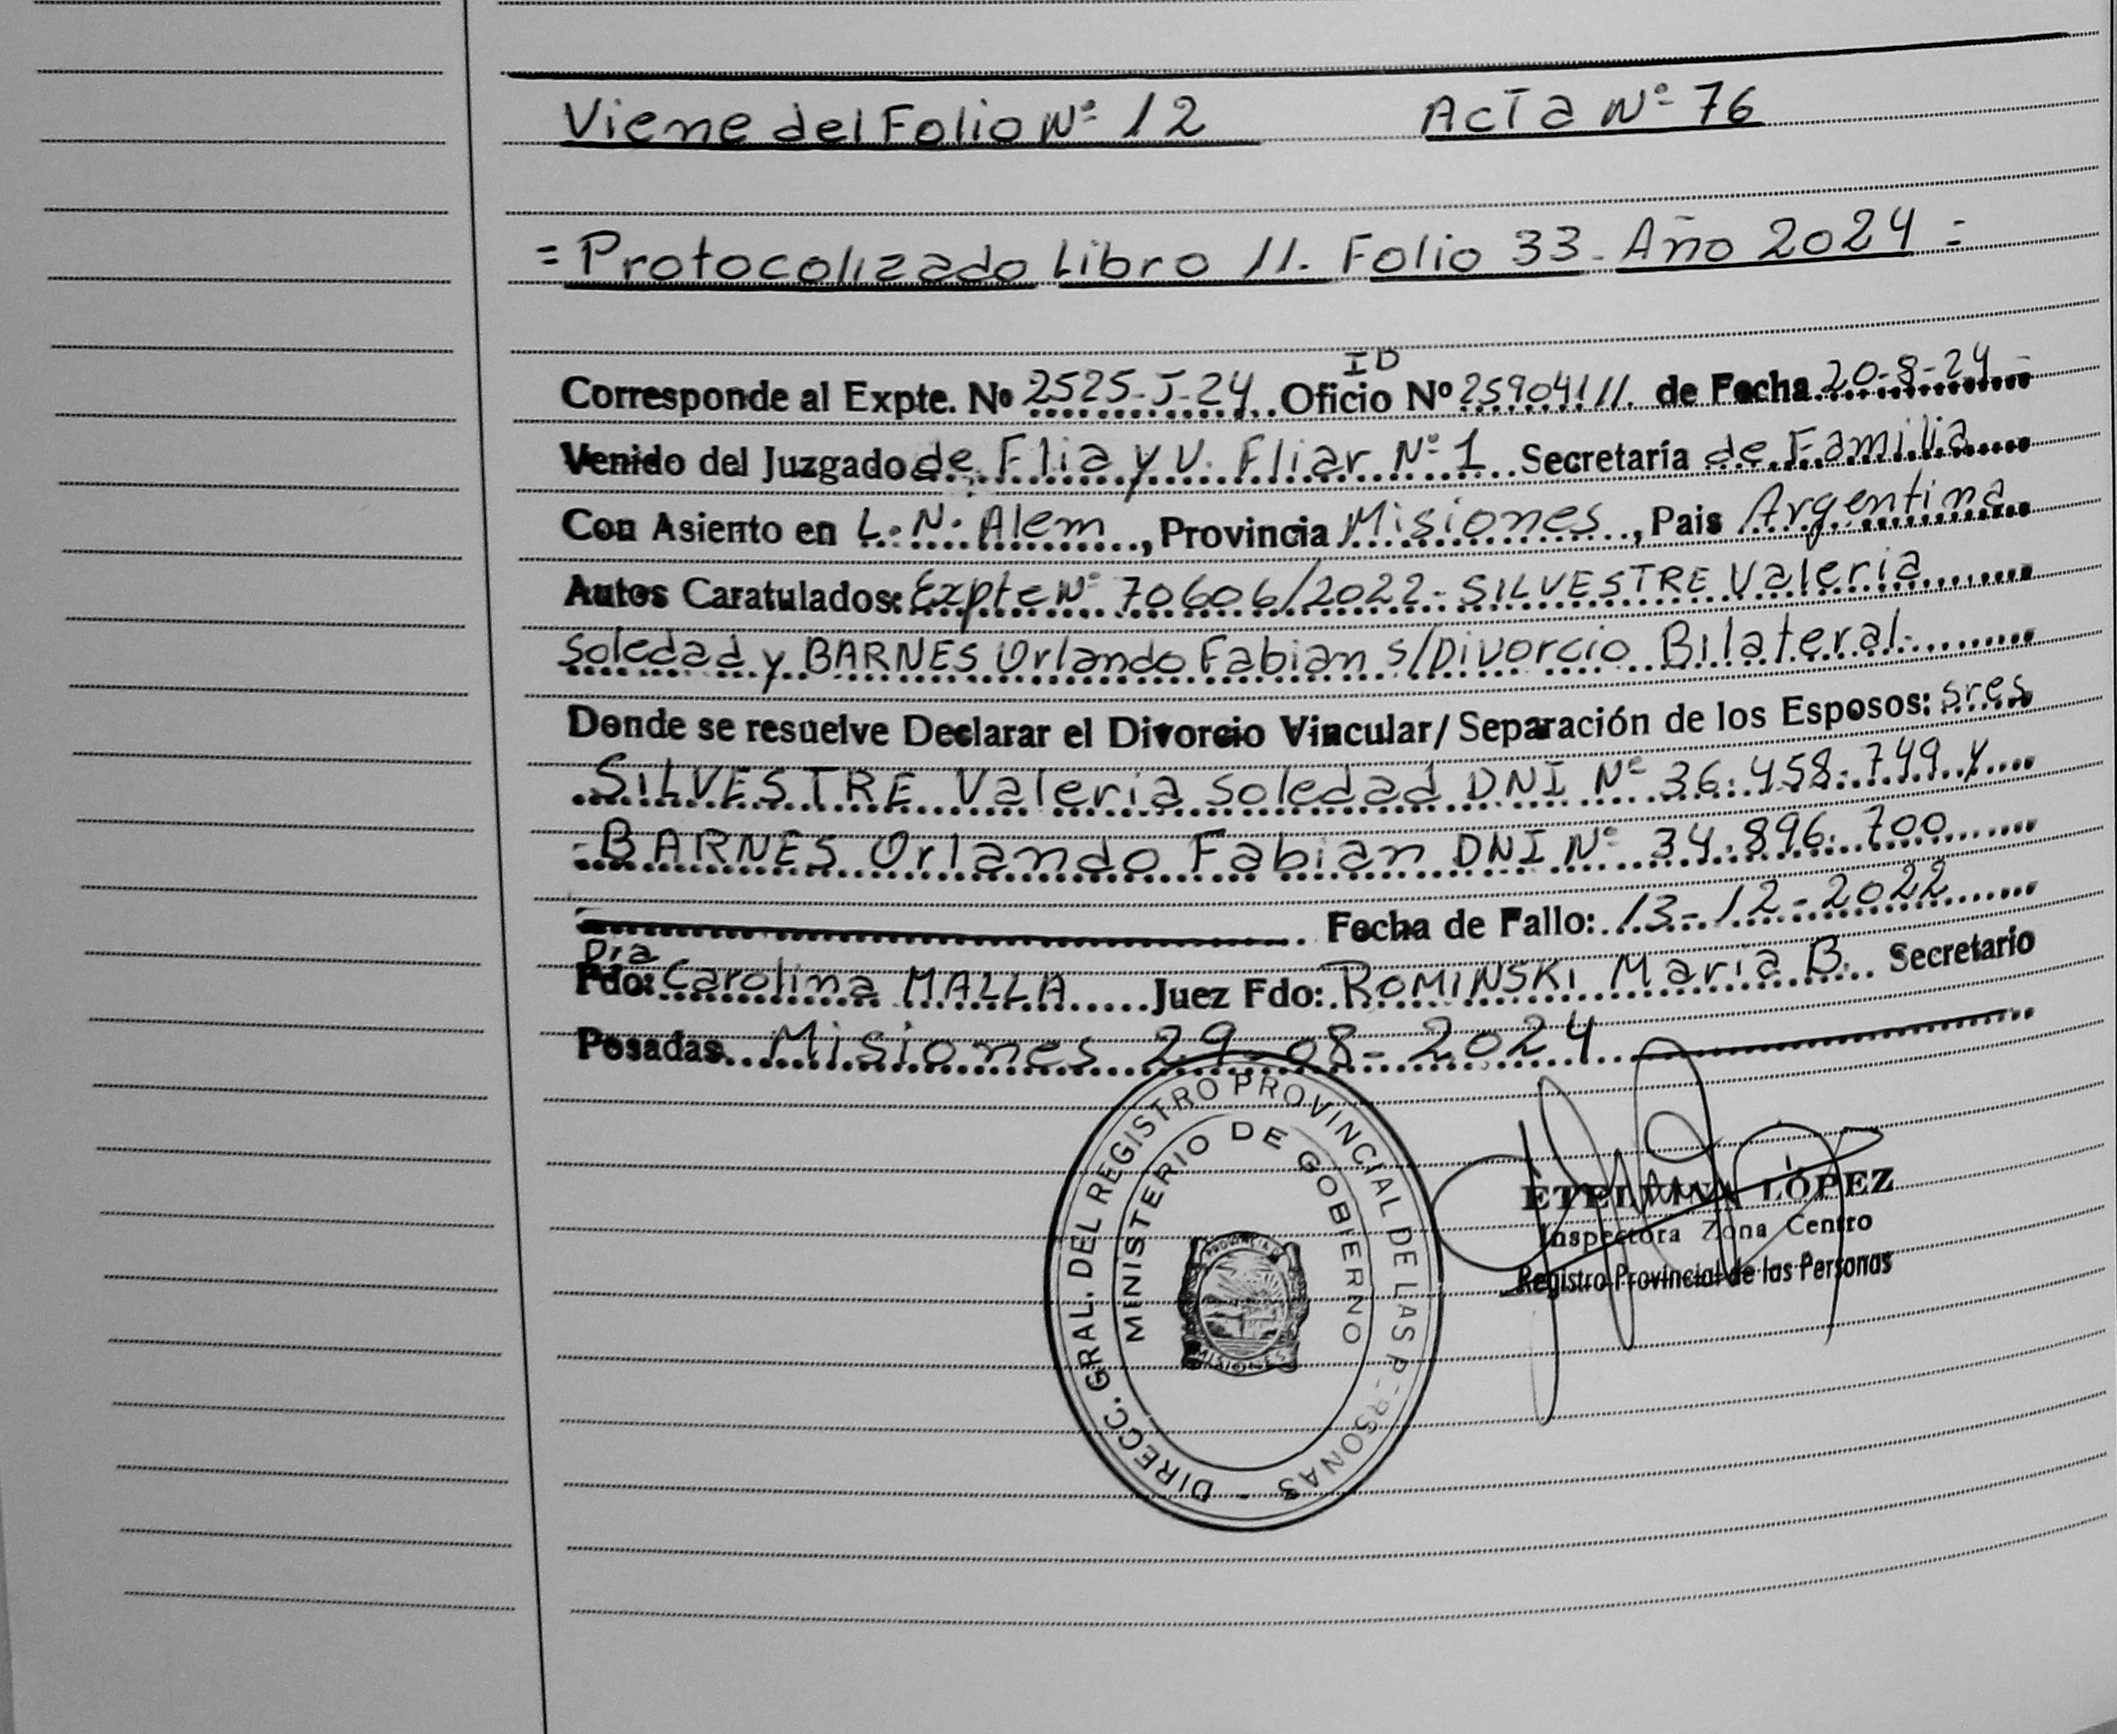 Viene del Folio Nº 12 Acta Nº 76
= Protocolizado Libro 11. Folio 33. Año 2024 =
ID
Corresponde al Expte. Nº 2525-J-24 Oficio Nº 25904111 de Fecha 20-8-24-
Venido del Juzgado de Flia y V. Fliar Nº 1 Secretaría de Familia
Con Asiento en L. N. Alem, Provincia Misiones, Pais Argentina
Autos Caratulados: Expte Nº 70606/2022- SILVESTRE Valeria
Soledad y BARNES Orlando Fabian s/Divorcio Bilateral.
Donde se resuelve Declarar el Divorcio Vincular/Separación de los Esposos: sres
SILVESTRE Valeria Soledad DNI Nº 36.458.749 y
-BARNES Orlando Fabian DNI Nº 34.896.700
Fecha de Fallo: 13-12-2022
Dra
Fdo: Carolina MALLA Juez Fdo: ROMINSKI Maria B. Secretario
Posadas Misiones 29-08-2024
DIRECC. GRAL. DEL REGISTRO PROVINCIAL DE LAS PERSONAS -
MINISTERIO DE GOBIERNO
PROVINCIA D
MISIONES
ETELVINA LÓPEZ
Inspectora Zona Centro
Registro Provincial de las Personas